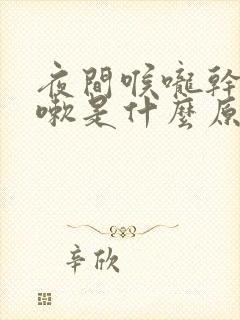 夜間喉嚨幹
嗽是什麼原
辛欣